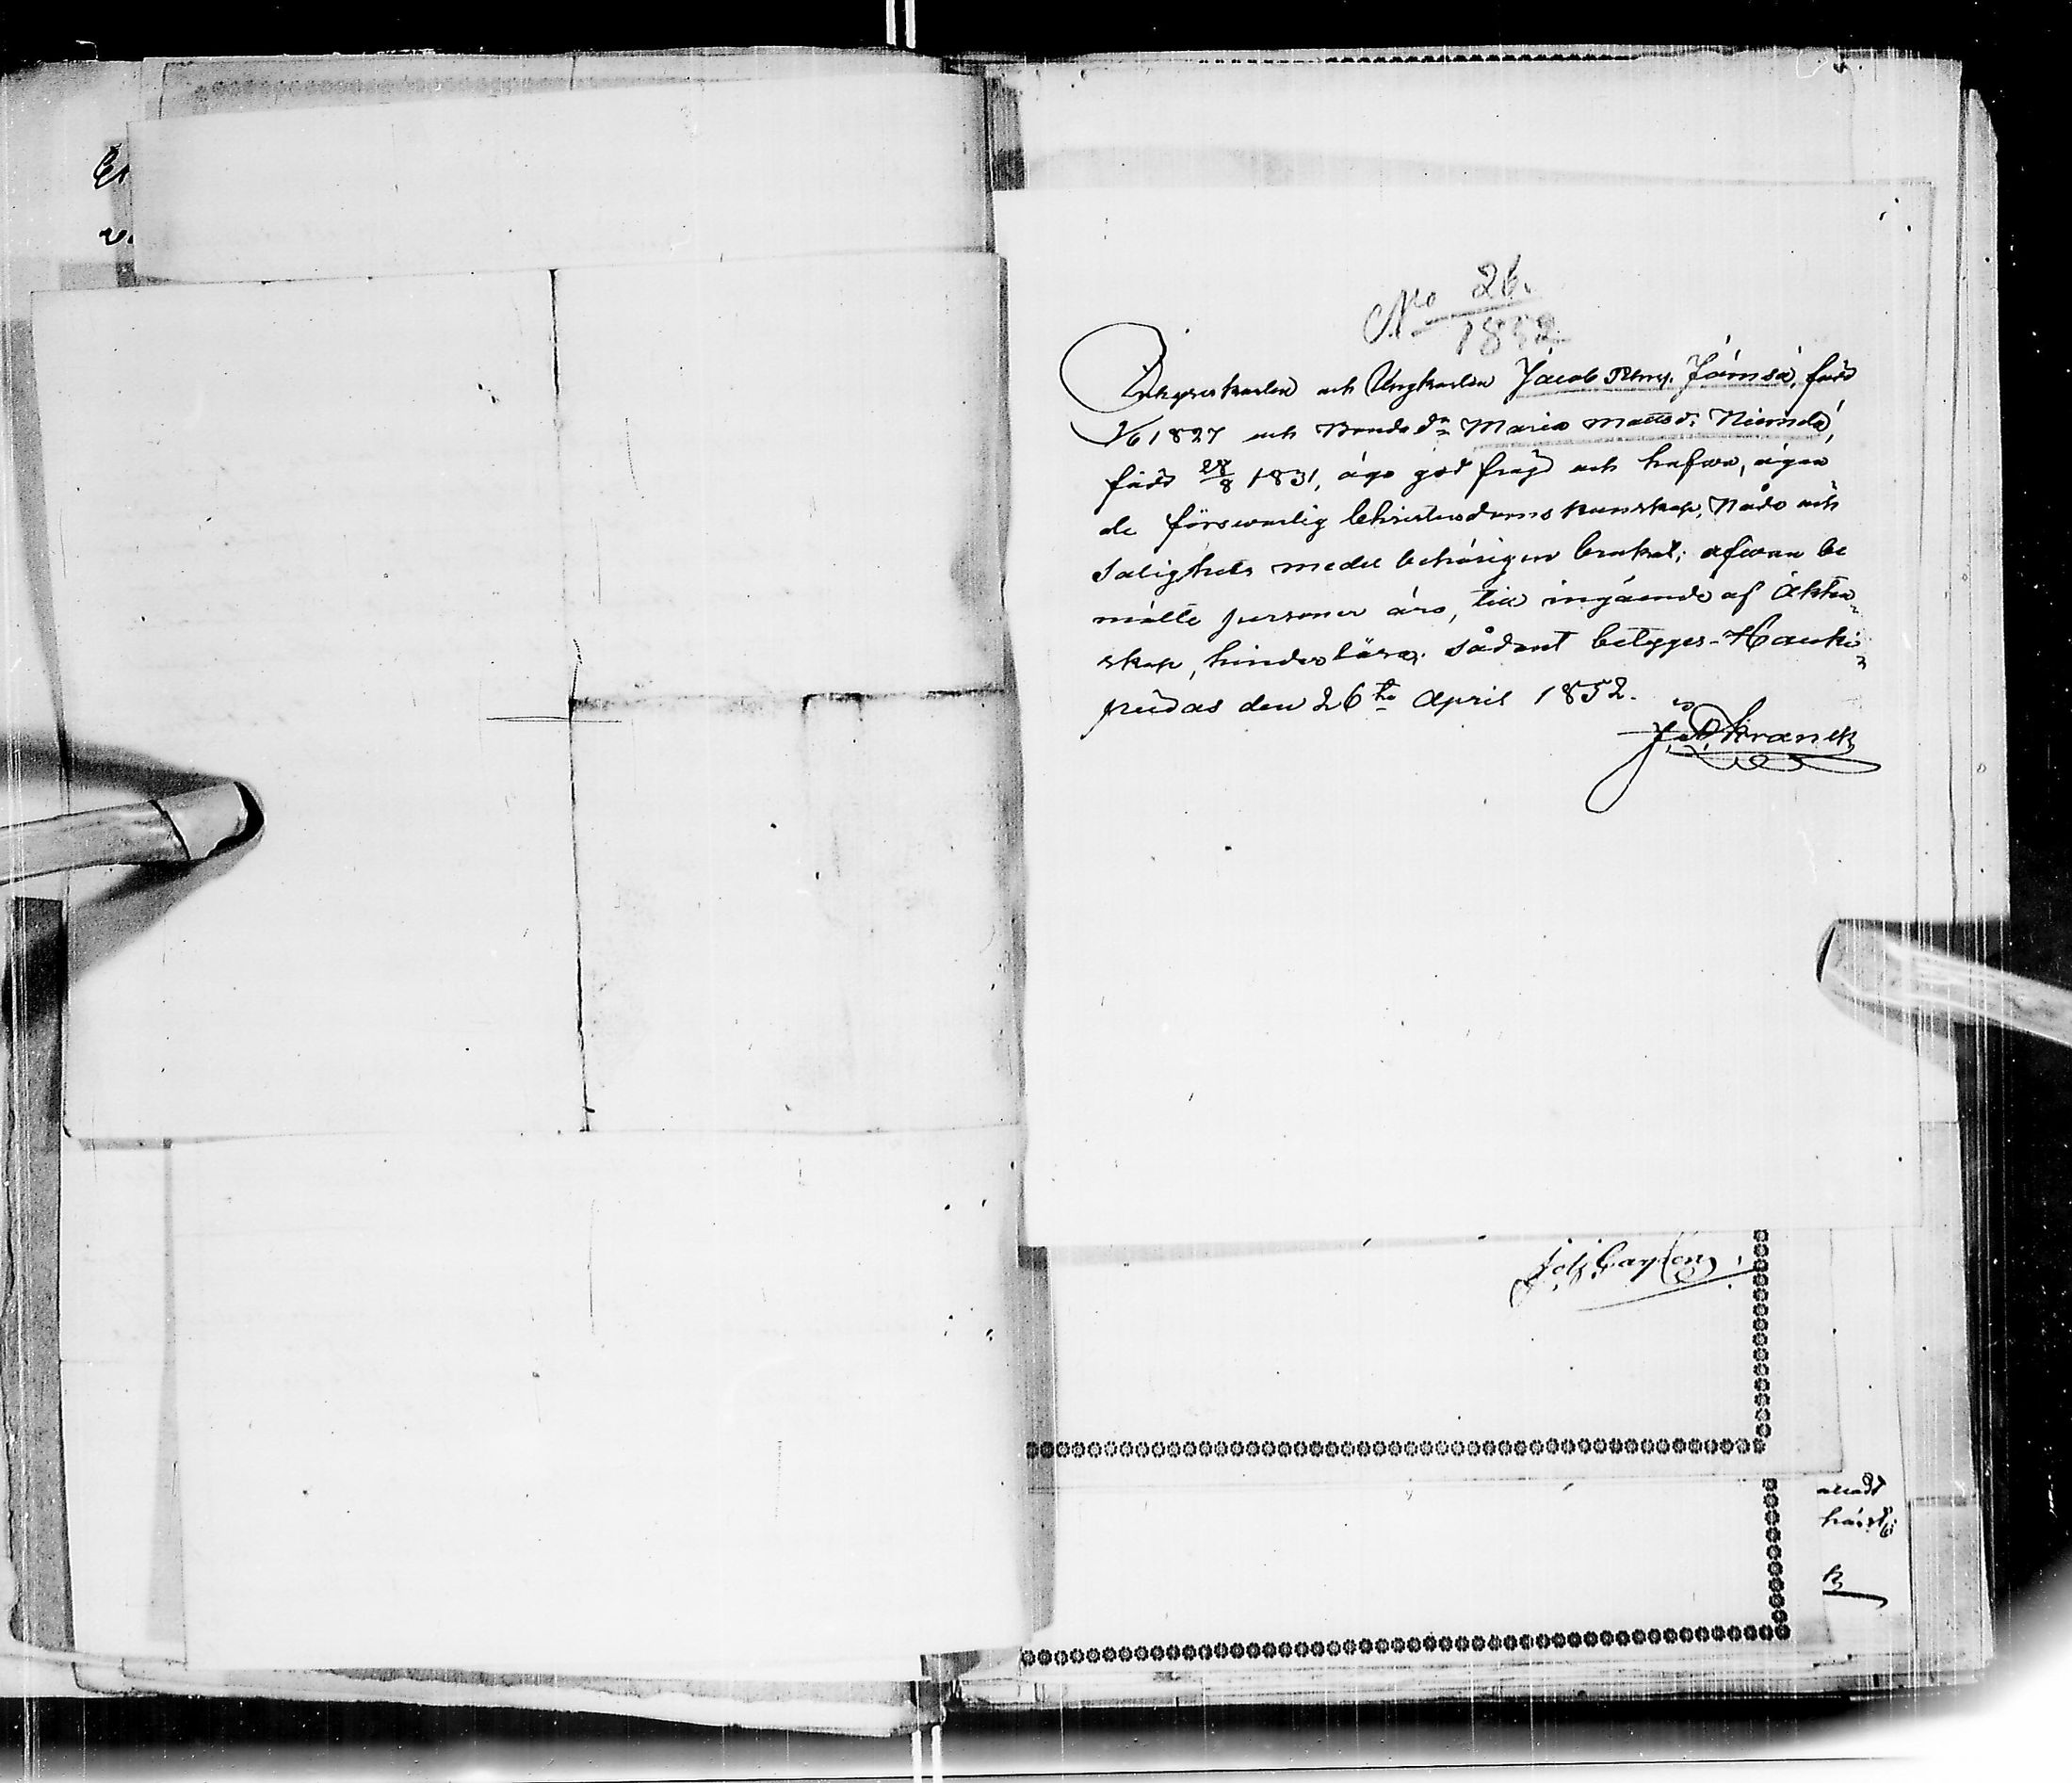 No 26.
1852
Inhyseskarlen och Ungkarlen Jacob Jämsä, född
1/6 1827 och Bonde dr Maria Mattsdr Niemelä,
född 28/8 1831, äga god frejd och hafva, ägan
de försvarlig Christendomskunskap, Nåde och
Salighets medel behörigen brukat; äfvan be
mälte personer äro, till ingående af Äkten-
skap, hinderlöse, sådant betygges - Hauki-
pudas den 26te April 1852.
Joh
havdt